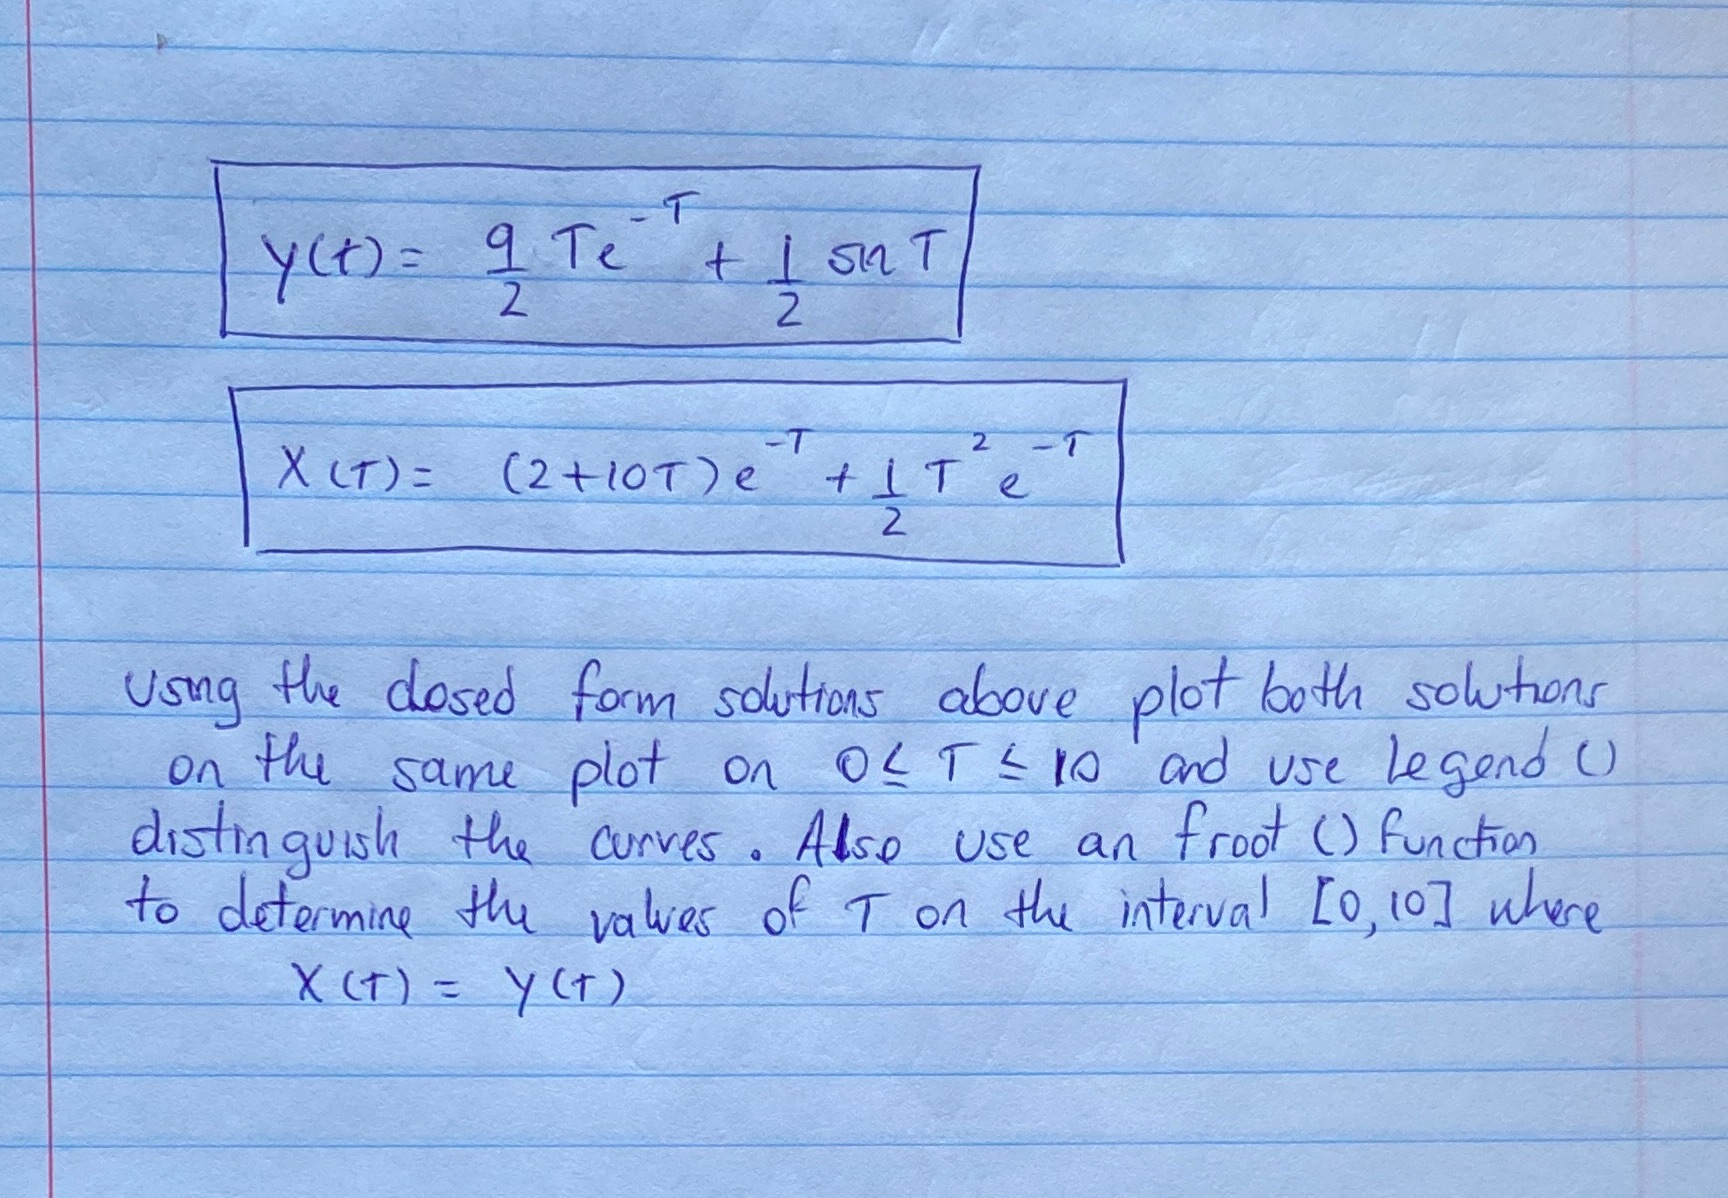 y(t) = 9/2 Te^-T + 1/2 sin T
X(T) = (2+10T)e^-T + 1/2 T^2 e^-T
Using the closed form solutions above plot both solutions
on the same plot on 0 ≤ T ≤ 10 and use legend ()
distinguish the curves. Also use an froot () function
to determine the values of T on the interval [0,10] where
X(T) = y(T)